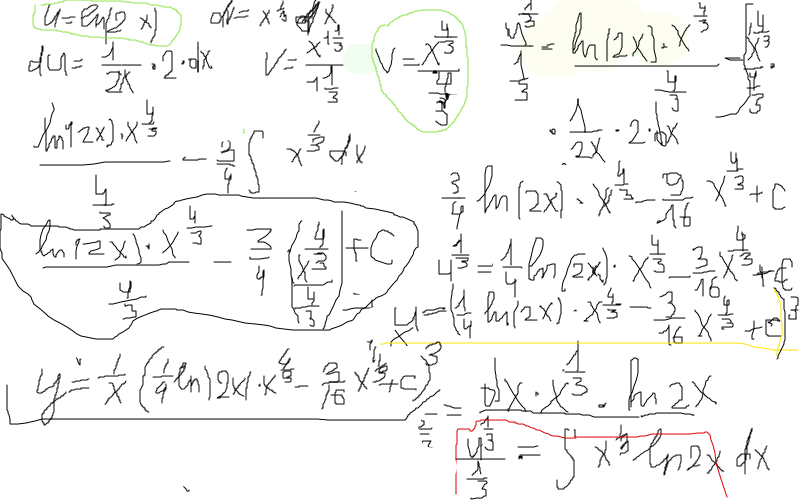 u = ln(2x)   dv = x^{1/3} dx
du = 1/2x · 2 · dx   v = x^{1 1/3} / 1 1/3   v = x^{4/3} / 4/3
u^{1/3} / 1/3 = ln(2x) · x^{4/3} / 4/3 - ∫ x^{4/3} / 4/3 ·
· 1/2x · 2 · dx
ln(2x) · x^{4/3} / 4/3 - 3/4 ∫ x^{1/3} dx
3/4 ln(2x) · x^{4/3} - 9/16 x^{4/3} + C
ln(2x) · x^{4/3} / 4/3 - 3/4 ( x^{4/3} / 4/3 ) + C =
u^{1/3} = 1/4 ln(2x) · x^{4/3} - 3/16 x^{4/3} + C
u/x = (1/4 ln(2x) · x^{4/3} - 3/16 x^{4/3} + C)^3
y = 1/x (1/4 ln)2x) · x^{4/3} - 3/16 x^{4/3} + C)^3
= dx · x^{1/3} · ln 2x
u^{1/3} / 1/3 = ∫ x^{1/3} ln 2x dx